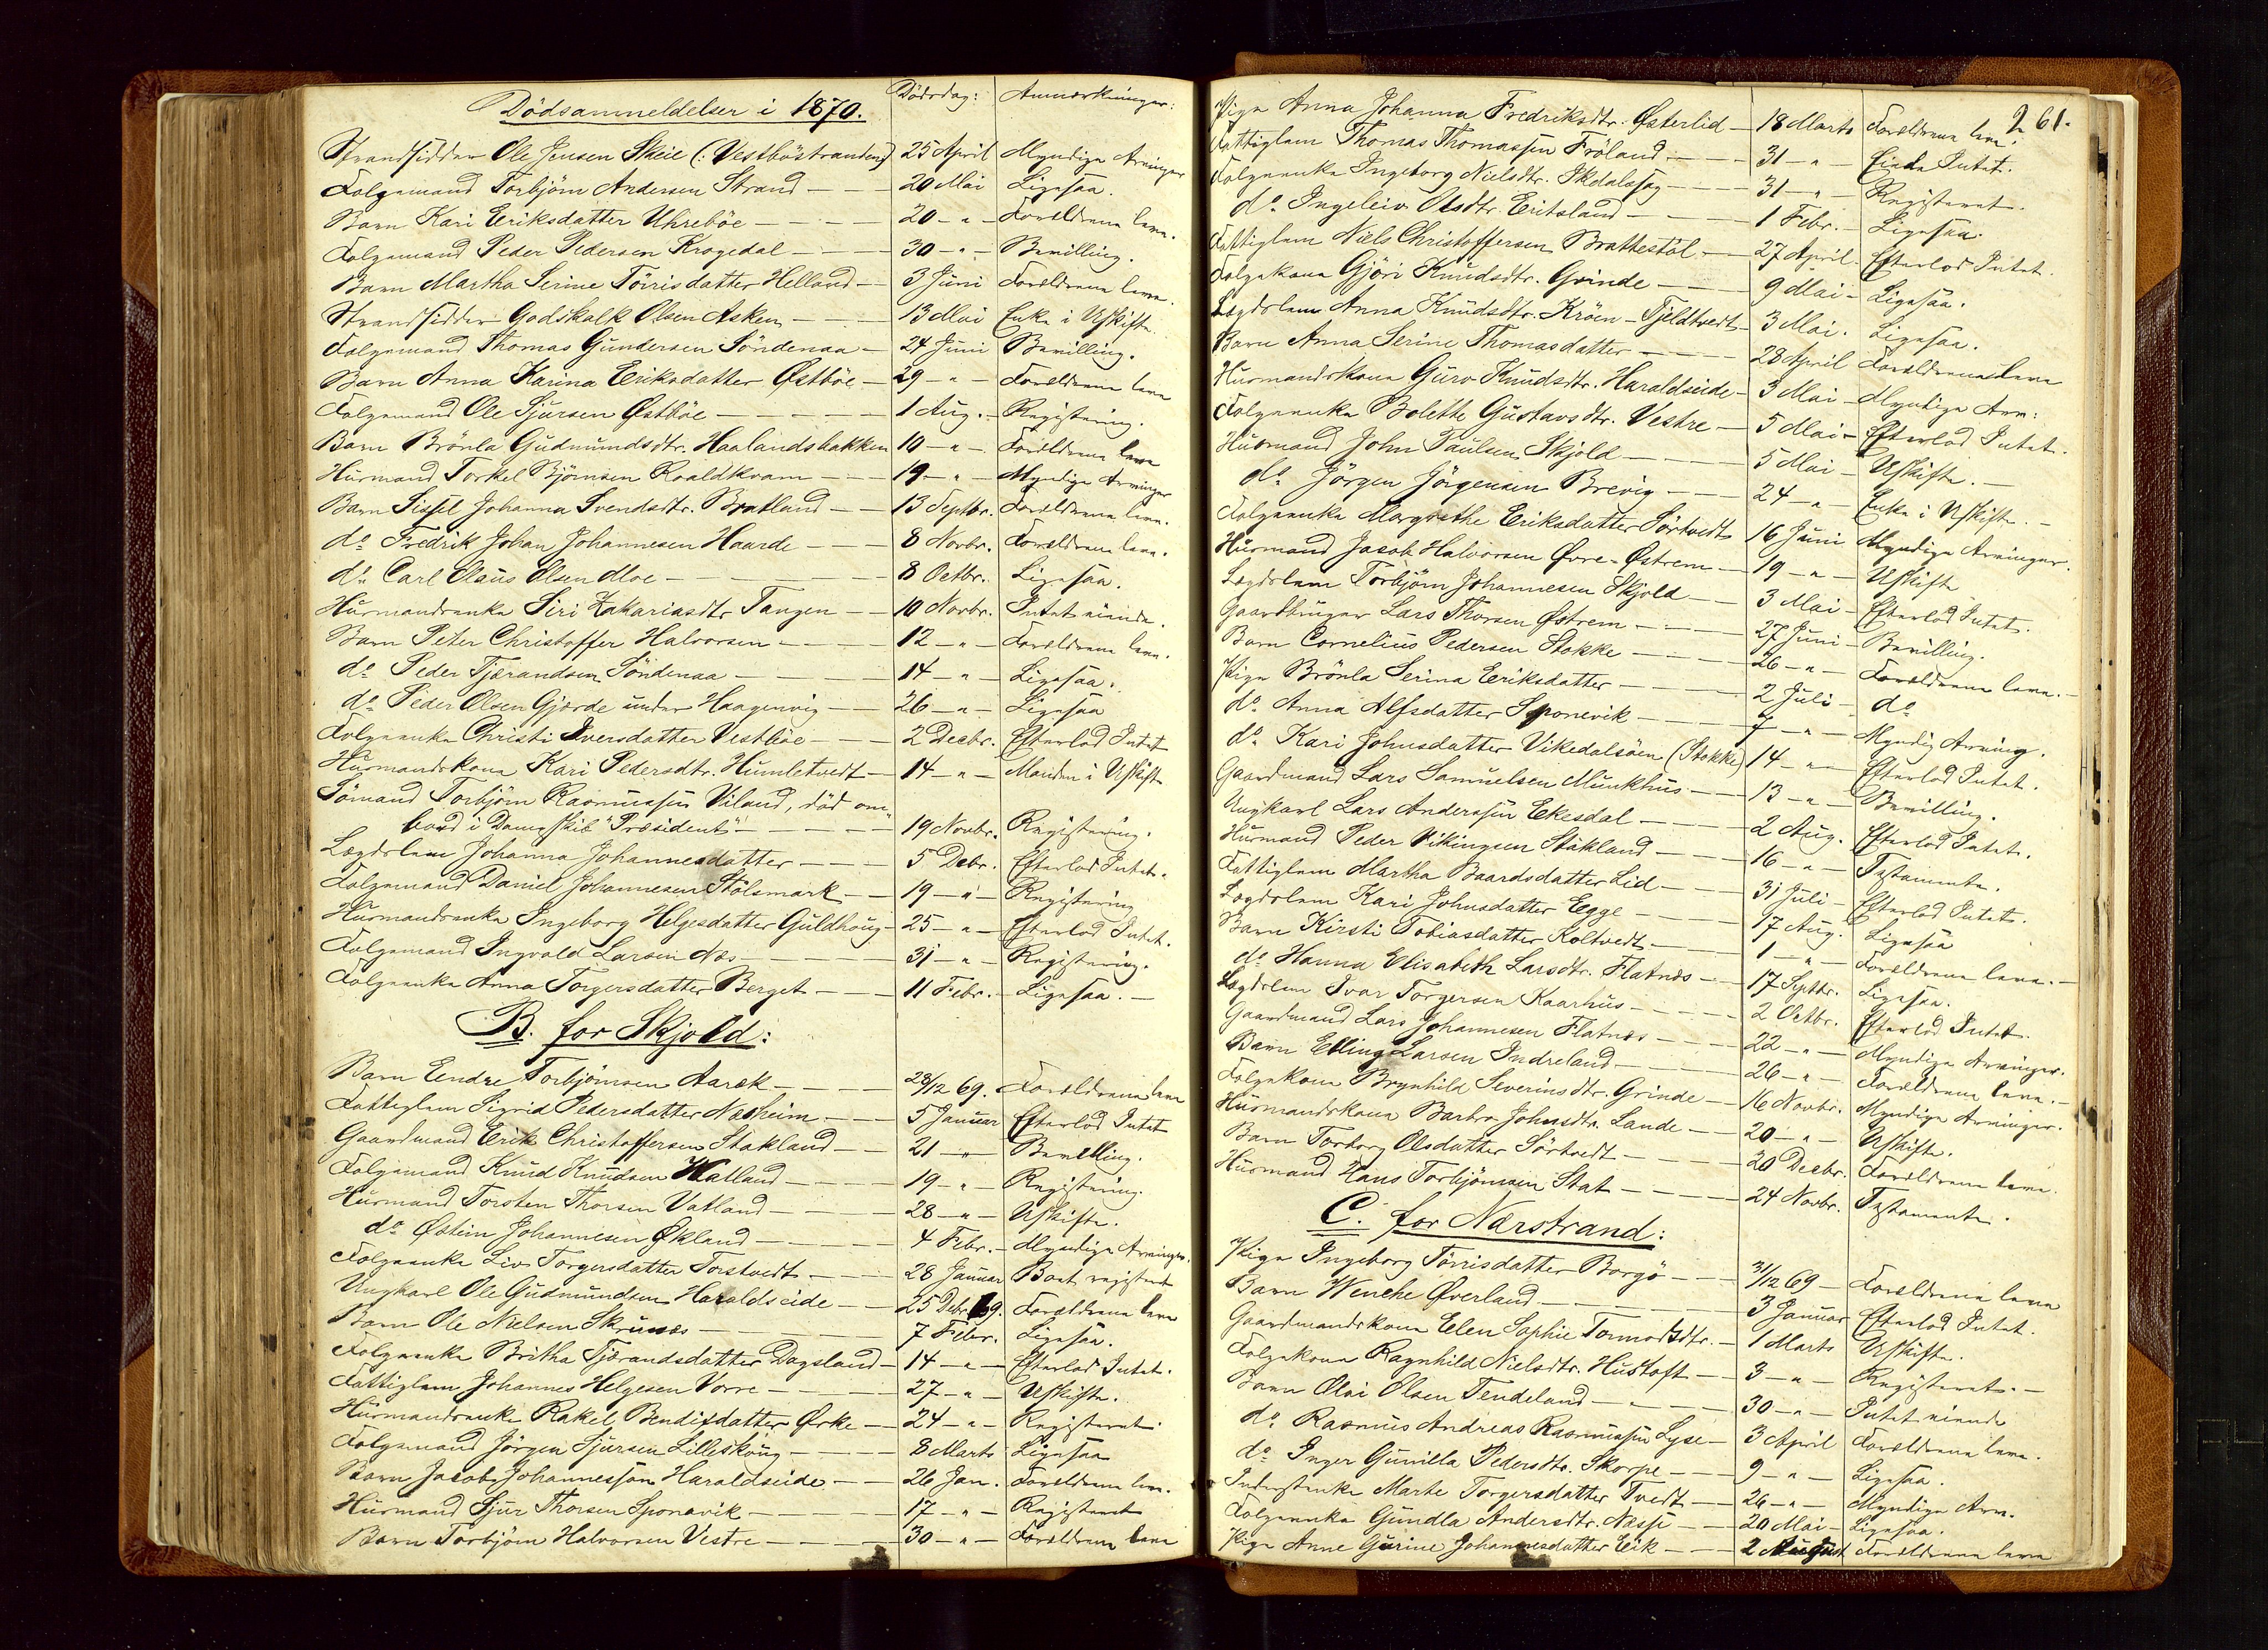 Dödsanmeldelser i 1870. Dödsdag: Anmærkninger:
Strandsidder Ole Jensen Skeie (: Vestböstranden) 25 April Myndige Arvinger
Folgemand Torbjörn Andersen Strand — 20 Mai Ligesaa.
Barn Kari Eriksdatter Uhrebøe — 20 - " - Forældrene leve.
Folgemand Peder Pedersen Krogedal — 30 - " - Bevilling.
Barn Martha Serine Törrisdatter Helland — 3 Juni Forældrene leve.
Strandsidder Godskalk Olsen Asken — 13 Mai Enke i Uskifte.
Folgemand Thomas Gundersen Söndenaa — 24 Juni Bevilling.
Barn Anna Karina Eriksdatter Østböe — 29 - " - Forældrene leve
Folgemand Ole Sjursen Østböe — 1 Aug. - Registering.
Barn Brönla Gudmundsdtr. Haalandsbakken 10 - " - Forældrene leve
Husmand Torkel Björnsen Roaldkvam — 19 - " - Myndige Arvinger
Barn Sissel Johanna Svendsdtr. Bratland — 13 Septbr. Forældrene leve.
do Fredrik Johan Johannesen Haarde — 8 Novbr. Forældrene leve.
do Carl Olaus Olsen Moe — 8 Octbr. Ligesaa.
Husmandsenke Siri Zakariasdtr Tangen — 10 Novbr. Intet eiende.
Barn Peter Christoffer Halvorsen — 12 - " - Forældrene leve.
do Peder Tjerandsen Söndenaa — 14 - " - Ligesaa.
do Peder Olsen Gjærde under Haagenvig — 26 - " - Ligesaa
Folgeenke Christi Iversdatter Vestböe — 2 Decbr. Efterlod Intet
Husmandskone Kari Pedersdtr. Humletvedt — 14 - " - Manden i Uskifte
Sömand Torbjörn Rasmussen Viland, död om
bord i Dampskib "Præsident" — 19 Novbr. Registering.
Lægdslem Johanna Johannesdatter — 5 Debr. Efterlod Intet.
Folgemand Daniel Johannesen Stölsmark — 19 - " - Registering
Husmandsenke Ingeborg Helgesdatter Guldhoug — 25 - " - Efterlod Intet.
Folgemand Ingvald Larsen Næs — 31 - " - Registering.
Folgeenke Anna Torgersdatter Berget — 11 Febr. - Ligesaa. —
B. for Skjold:
Barn Eendre Torbjörnsen Aarek — 28/12 69. Forældrene leve
Fattiglem Sigrid Pedersdatter Næsheim — 5 Januar Efterlod Intet
Gaardmand Erik Christoffersen Stakland — 21 - " - Bevilling.
Folgemand Knud Knudsen Hatland — 19 - " - Registering.
Husmand Torsten Thorsen Vatland — 28 - " - Uskifte.
do Østein Johannesen Økland — 4 Febr. - Myndige Arvinger.
Folgeenke Liv Torgersdatter Torstvedt — 28 Januar Boet registeret
Ungkarl Ole Gudmundsen Haraldseide — 25 Debr. 69. Forældrene leve
Barn Ole Nielsen Skrunæs — 7 Febr. Ligesaa.
Folgeenke Britha Tjerandsdatter Dagsland — 14 - " - Efterlod Intet.
Fattiglem Johannes Helgesen Vorre — 27 - " - Uskifte.
Husmandsenke Rakel Bendixdatter Ørke — 24 - " - Registeret.
Folgemand Jörgen Sjursen Lilleskoug — 8 Marts Ligesaa
Barn Jacob Johannessen Haraldseide — 26 Jan. Forældrene leve.
Husmand Sjur Thorsen Sponevik — 17 - " - Registeret
Barn Torbjörn Halvorsen Vestre — 30 - " - Forældrene leve
261.
Pige Anna Johanna Fredriksdtr. Østerlid — 18 Marts Forældrene leve.
Fattiglem Thomas Thomassen Fröland — 31 - " Eiede Intet.
Folgeenke Ingeborg Nielsdtr. Ikdalssag — 31 - " Registeret.
do Ingeleiv Olsdtr. Eritsland — 1 Febr. - Ligesaa.
Fattiglem Niels Christoffersen Brattestöl — 27 April. Efterlod Intet.
Folgekone Gjöri Knudsdtr. Grinde — 9 Mai - Ligesaa.
Lægdslem Anna Knudsdtr. Kröen - Tjeldtvedt 3 Mai. Ligesaa.
Barn Anna Serine Thomasdatter — 28 April Forældrene leve
Husmandskone Guro Knudsdtr. Haraldseide — 3 Mai - Myndige Arv:
Folgeenke Bolette Gustavsdtr. Vestre — 5 Mai - Efterlod Intet.
Husmand John Paulsen Skjold — 5 Mai - Uskifte. —
do Jörgen Jörgensen Brevig — 24 - " - Enke i Uskifte. —
Folgeenke Margrethe Eriksdatter Sörtvedt 16 Juni Myndige Arvinger.
Husmand Jacob Halvorsen Øvre-Østrem — 19 - " - Uskifte
Lægdslem Torbjörn Johannesen Skjold — 3 Mai - Efterlod Intet.
Gaardbruger Lars Thorsen Østrem — 27 Juni - Bevilling.
Barn Cornelius Pedersen Stokke — 26 - " - Forældrene leve. —
Pige Brönla Serina Eriksdatter — 2 Juli - do
do Anna Alfsdatter Sponevik — 7 - " - Myndig Arving.
do Kari Johnsdatter Vikedalsöen (Stokke) 14 - " - Efterlod Intet.
Gaardmand Lars Samuelsen Munkhus — 13 - " - Bevilling.
Ungkarl Lars Anderssen Ekesdal — 2 Aug. Efterlod Intet.
Husmand Peder Vikingsen Stakland — 16 - " - Testamente.
Fattiglem Martha Baardsdatter Lid — 31 Juli - Efterlod Intet.
Lægdslem Kari Johnsdatter Egge — 17 Aug. Ligesaa
Barn Kirsti Tobiasdatter Koltvedt — 1 - " - Forældrene leve. —
do Hanna Elisabeth Larsdtr. Flatnæs — 17 Septbr. Ligesaa.
Lægdslem Ivar Torgersen Kaarhus — 2 Octbr. Efterlod Intet.
Gaardmand Lars Johannesen Flatnæs — 22 - " - Myndige Arvinger.
Barn Elling Larsen Indreland — 26 - " - Forældrene leve. —
Folgekone Brynhild Severinsdtr. Grinde — 16 Novbr. Myndige Arvinger.
Husmandskone Barbro Johnsdtr. Lande — 20 - " - Uskifte.
Barn Torborg Olsdatter Sörtvedt — 20 Decbr. Forældrene leve.
Husmand Hans Torbjörnsen Stat — 24 Novbr. Testamente.
C. for Nærstrand:
Pige Ingeborg Törrisdatter Borgö — 31/12 69 — Forældrene leve
Barn Wenche Øverland — 3 Januar Efterlod Intet.
Gaardmandskone Elen Sophie Tormodsdtr. — 1 Marts Uskifte.
Folgekone Ragnhild Nielsdtr. Hustoft — 3 - " - Registeret. —
Barn Olai Olsen Tendeland — 30 - " - Intet eiende
do Rasmus Andreas Rasmussen Lyse — 3 April Forældrene leve.
do Inger Gunilla Pedersdtr. Skorpe — 9 - " - Ligesaa.
Inderstenke Marte Torgersdatter Tvedt — 26 - " - Myndige Arv.
Folgeenke Gundla Andersdtr. Næsse — 20 Mai - Ligesaa.
Pige Anne Gurine Johannesdatter Eik — 2 August Forældrene leve